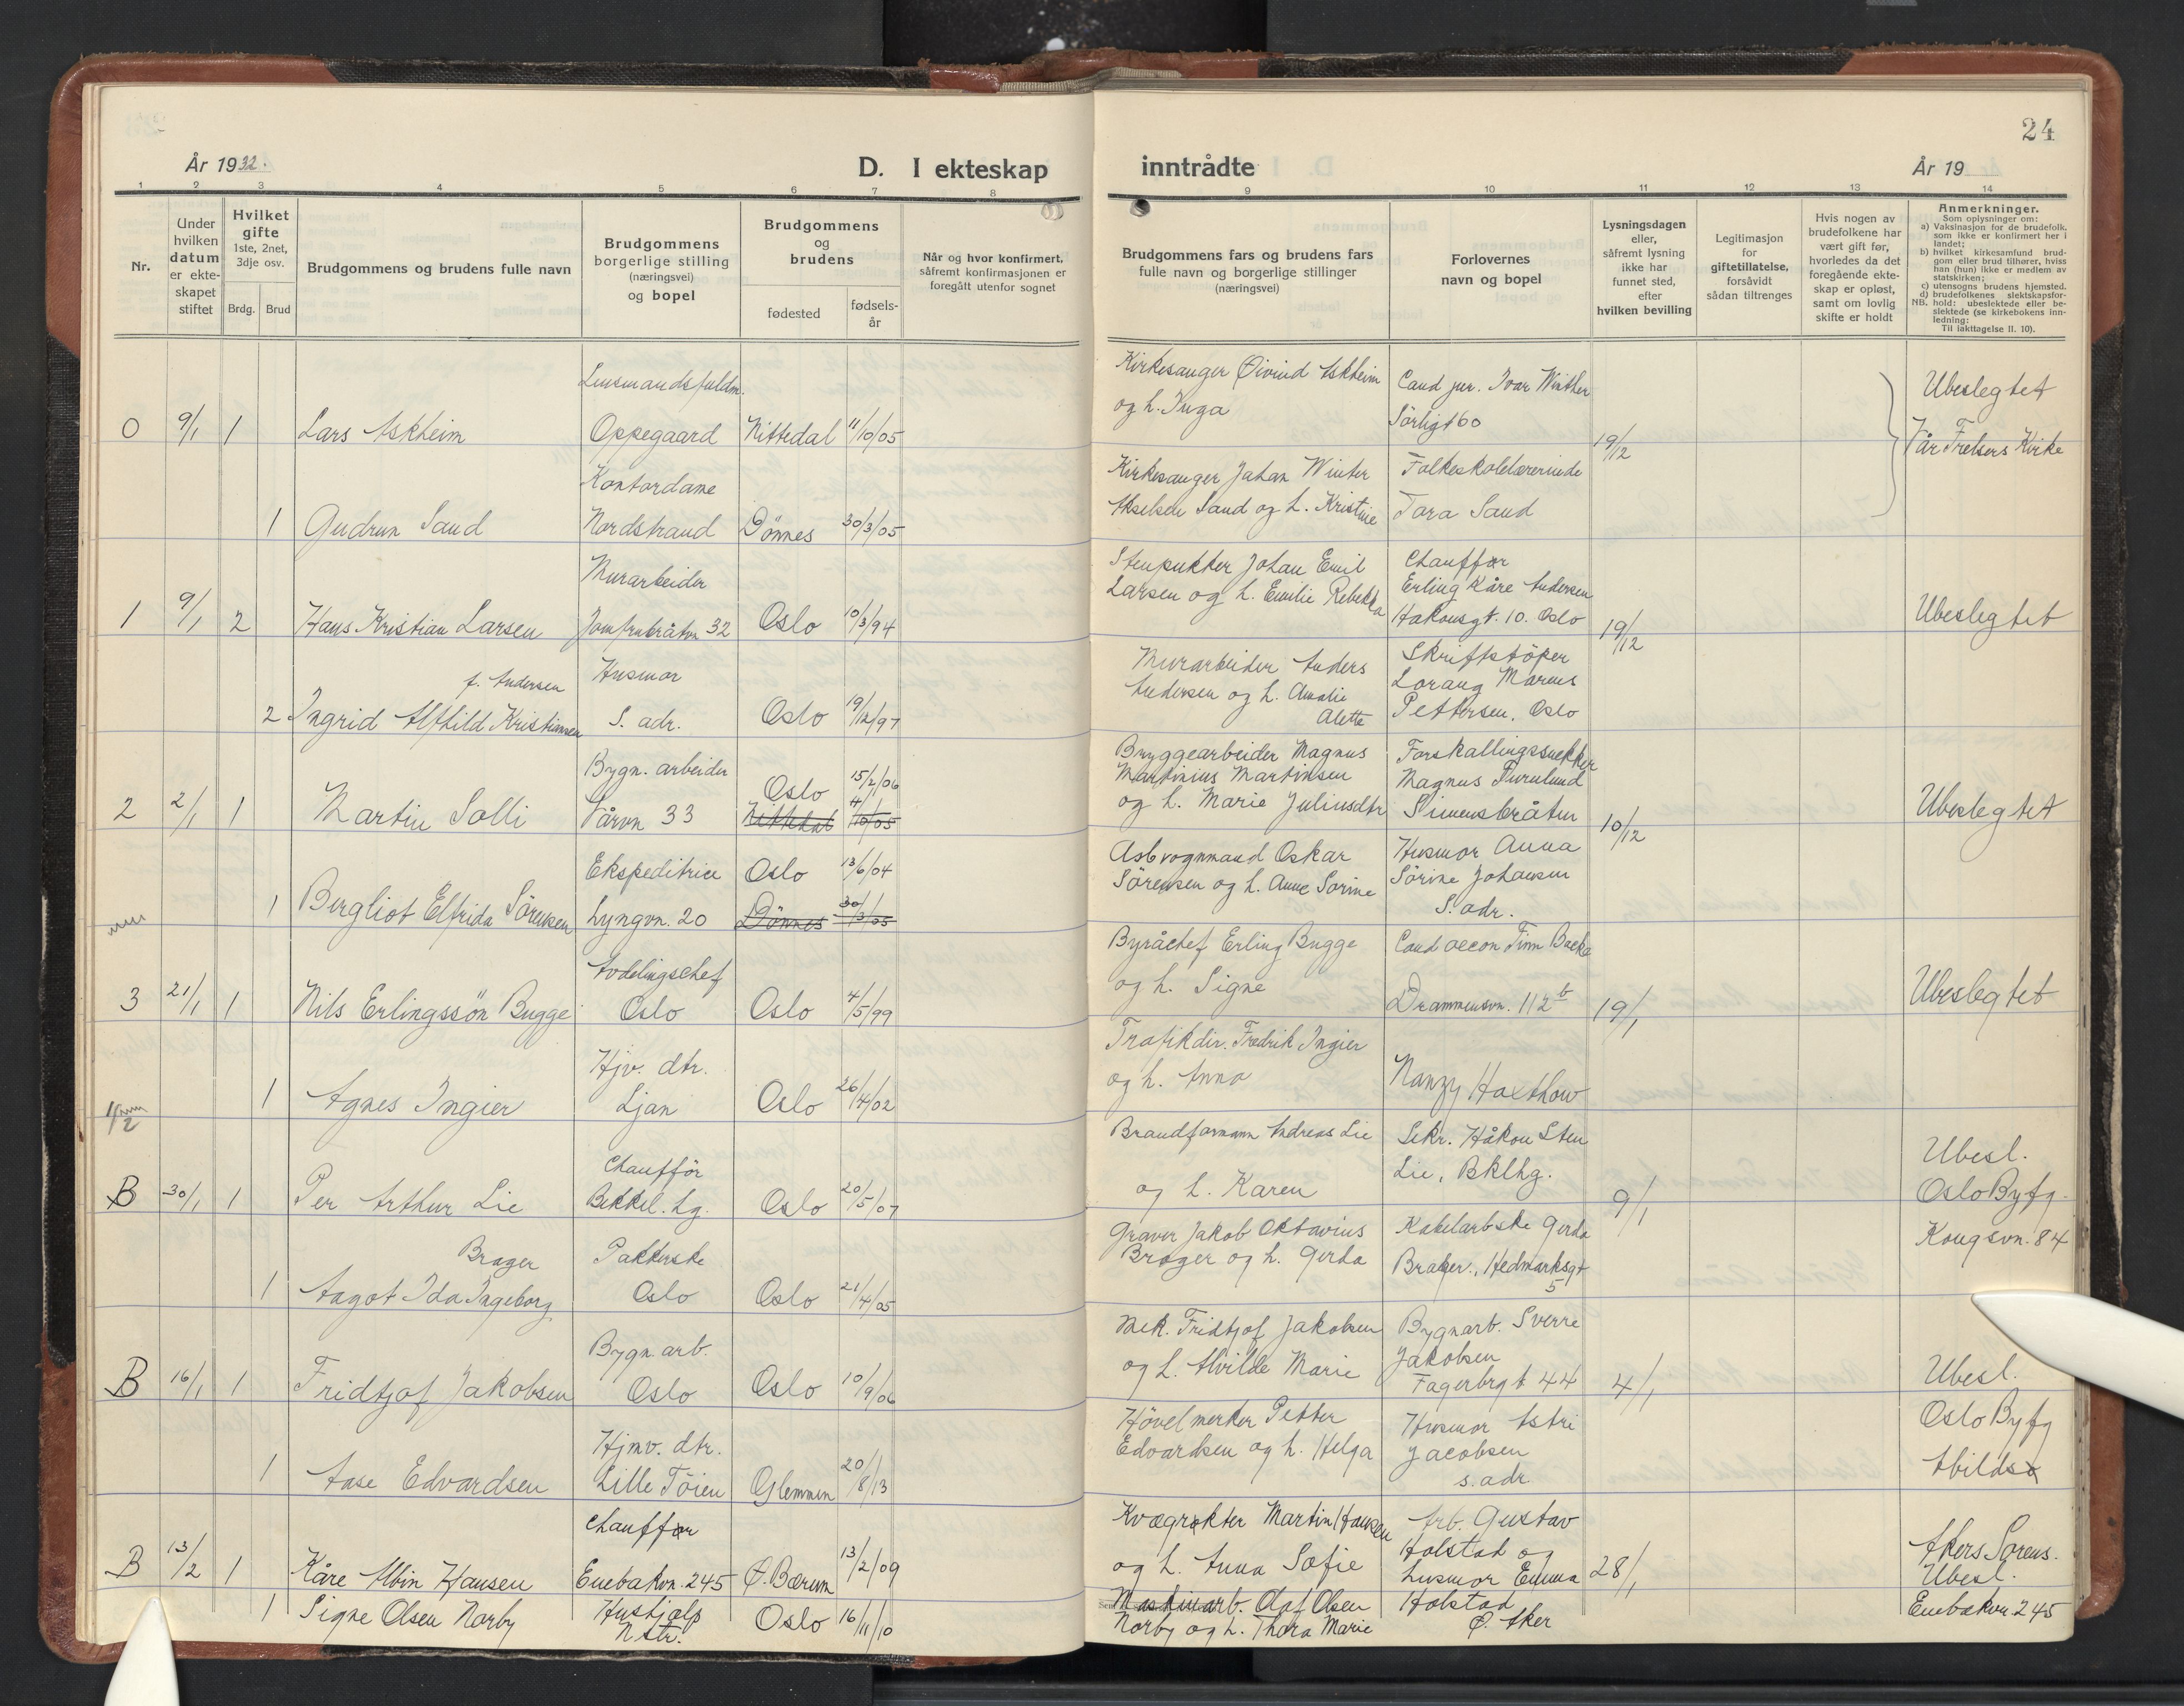 24
År 1932.
D. I ekteskap
inntrådte
År 19
1 2 3 4 5 6 7 8 9 10 11 12 13 14
Nr.
Under
hvilken
datum
er ekte-
skapet
stiftet
Hvilket
gifte
1ste, 2net,
3dje osv.
Brdg. Brud
Brudgommens og brudens fulle navn
Brudgommens
borgerlige stilling
(næringsvei)
og bopel
Brudgommens
og
brudens
fødested
fødsels-
år
Når og hvor konfirmert,
såfremt konfirmasjonen er
foregått utenfor sognet
Brudgommens fars og brudens fars
fulle navn og borgerlige stillinger
(næringsvei)
Forlovernes
navn og bopel
Lysningsdagen
eller,
såfremt lysning
ikke har
funnet sted,
efter
hvilken bevilling
Legitimasjon
for
giftetillatelse,
forsåvidt
sådan tiltrenges
Hvis nogen av
brudefolkene har
vært gift før,
hvorledes da det
foregående ekte-
skap er opløst,
samt om lovlig
skifte er holdt
Anmerkninger.
Som oplysninger om:
a) Vaksinasjon for de brudefolk,
som ikke er konfirmert her i
landet;
b) hvilket kirkesamfund brud-
gom eller brud tilhører, hviss
han (hun) ikke er medlem av
statskirken;
c) utensogns brudens hjemsted.
d) brudefolkenes slektskapsfor-
NB. hold: ubeslektede eller be-
slektede (se kirkebokens inn-
ledning:
Til iakttagelse II. 10).
0 9/1 1 Lars Askheim
Lensmandsfuldm.
Oppegaard
Nittedal 11/10/05
Kirkesanger Øivind Askheim
og h. Inga
Cand jur. Ivar Winther
Sörligt 60
19/12
Ubeslegtet
Vår Frelsers Kirke
1 Gudrun Sand
Kontordame
Nordstrand
Dönnes 30/3/05
Kirkesanger Johan Winter
Akselsen Sand og h. Kristine
Folkeskolelærerinde
Tora Sand
1 9/1 2 Hans Kristian Larsen
Murarbeider
Jomfrubråtvn 32
Oslo 10/3/94
Stenpukker Johan Emil
Larsen og h. Emilie Rebekka
Chauffør
Erling Kåre Andersen
Hakonsgt. 10. Oslo
19/12
Ubeslegtet
f. Andersen
2 Ingrid Alfhild Kristiansen
Husmor
S. adr.
Oslo 19/12/97
Murarbeider Anders
Andersen og h. Amalie
Alette
Skriftstöper
Lorang Marius
Pettersen, Oslo
2 2/1 1 Martin Solli
Bygn. arbeider
Vårvn 33
Oslo 15/2/06
Nittedal 4/10/05
Bryggearbeider Magnus
Martinius Martinsen
og h. Marie Juliusdtr
Forskallingssnekker
Magnus Furulund
Simensbråten
10/12
Ubeslegtet
1 Bergliot Elfrida Sörensen
Ekspeditrice
Lyngvn. 20
Oslo 13/6/04
Dönnes 30/3/05
Asbvognmand Oskar
Sörensen og h. Anne Sorine
Husmor Anna
Sörine Johansen
S. adr.
3 21/1 1 Nils Erlingssön Bugge
Avdelingschef
Oslo
Oslo 4/5/99
Byråchef Erling Bugge
og h. Signe
Cand oecon Finn Backe
Drammensvn. 112 b
19/1
Ubeslegtet
4 1/2
1 Agnes Ingier
Hjv. dtr.
Ljan
Oslo 26/4/02
Trafikdir. Fredrik Ingier
og h. Anna
Nanzy Haxthow
B 30/1 1 Per Arthur Lie
Chaufför
Bekkel. hg.
Oslo 20/5/07
Brandformann Andreas Lie
og h. Karen
Sekr. Håkon Sten
Lie, Bklhg.
9/1
Ubesl.
Oslo Byfg.
Kongsvn. 84
Brager
1 Aagot Ida Ingeborg
Pakkerske
Oslo
Oslo 21/4/05
Graver Jakob Oktavius
Brager og h. Gerda
Kabelarbske Gerda
Brager, Hedmarksgt
5
B 16/1 1 Fridtjof Jakobsen
Bygn. arb.
Oslo
Oslo 10/9/06
Mek. Fridtjof Jakobsen
og h. Alvilde Marie
Bygnarb. Sverre
Jakobsen
Fagerbrgt. 44
4/1
Ubesl.
Oslo Byfg
Abildsø
1 Aase Edvardsen
Hjmv. dtr.
Lille Töien
Glemmen 20/8/13
Hövelmerker Petter
Edvardsen og h. Helga
Husmor Astri
Jacobsen
s. adr
B 13/2 1 Kåre Albin Hansen
Chauffør
Enebakvn. 245
Ø. Bærum 13/2/09
Kvægrøkter Martin Hansen
og h. Anna Sofie
Arb. Gustav
Holstad og
husmor Emma
Holstad
Ø. Aker
28/1
Akers Sorens.
Ubesl.
Enebakvn 245
1 Signe Olsen Norby
Hushjælp
Nstr.
Oslo 16/11/10
Maskinarb. Olaf Olsen
Norby og h. Thora Marie